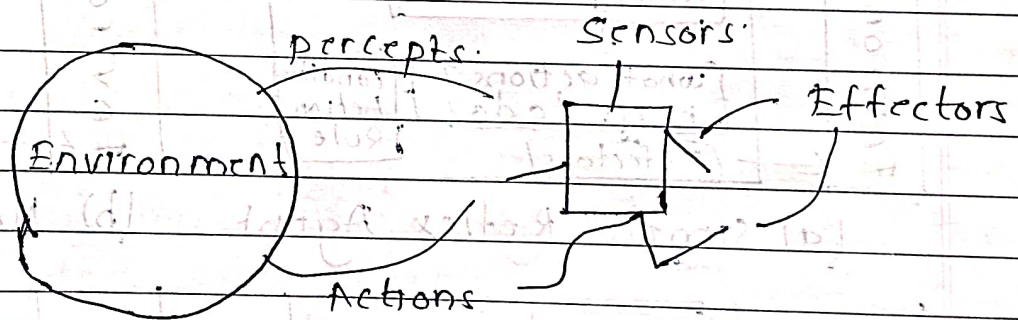 percepts.
Sensors
Effectors
Environment
Actions